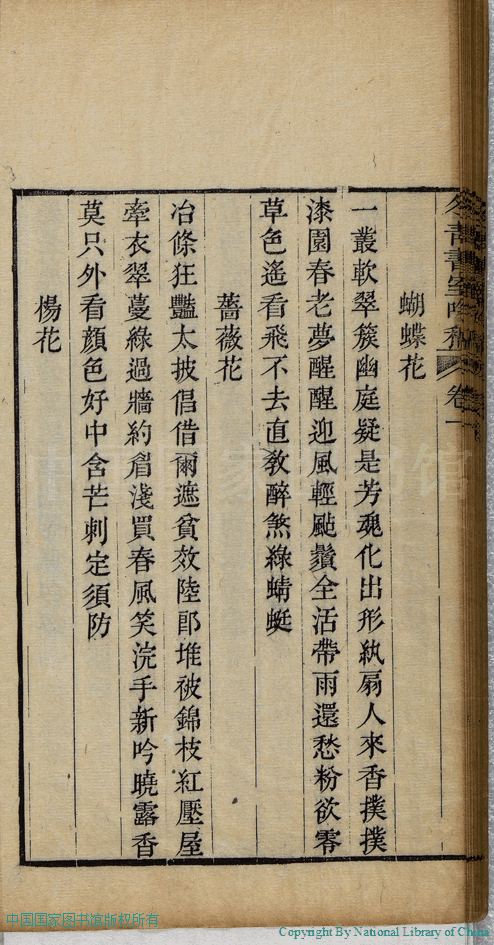 蝴蝶花
一叢軟翠簇幽庭疑是芳魂化出形紈扇人來香撲撲
漆園春老夢醒醒迎風輕颭鬚全活帶雨還愁粉欲零
草色遙看飛不去直教醉煞綠蜻蜓
薔薇花
冶條狂豔太披倡借爾遮貧效陸郎堆被錦枝紅壓屋
牽衣翠蔓綠過牆約眉淺買春風笑浣手新吟曉露香
莫只外看顏色好中含芒刺定須防
楊花
青書室吟稿
卷一
中国国家图书馆版权所有
Copyright By National Library of China